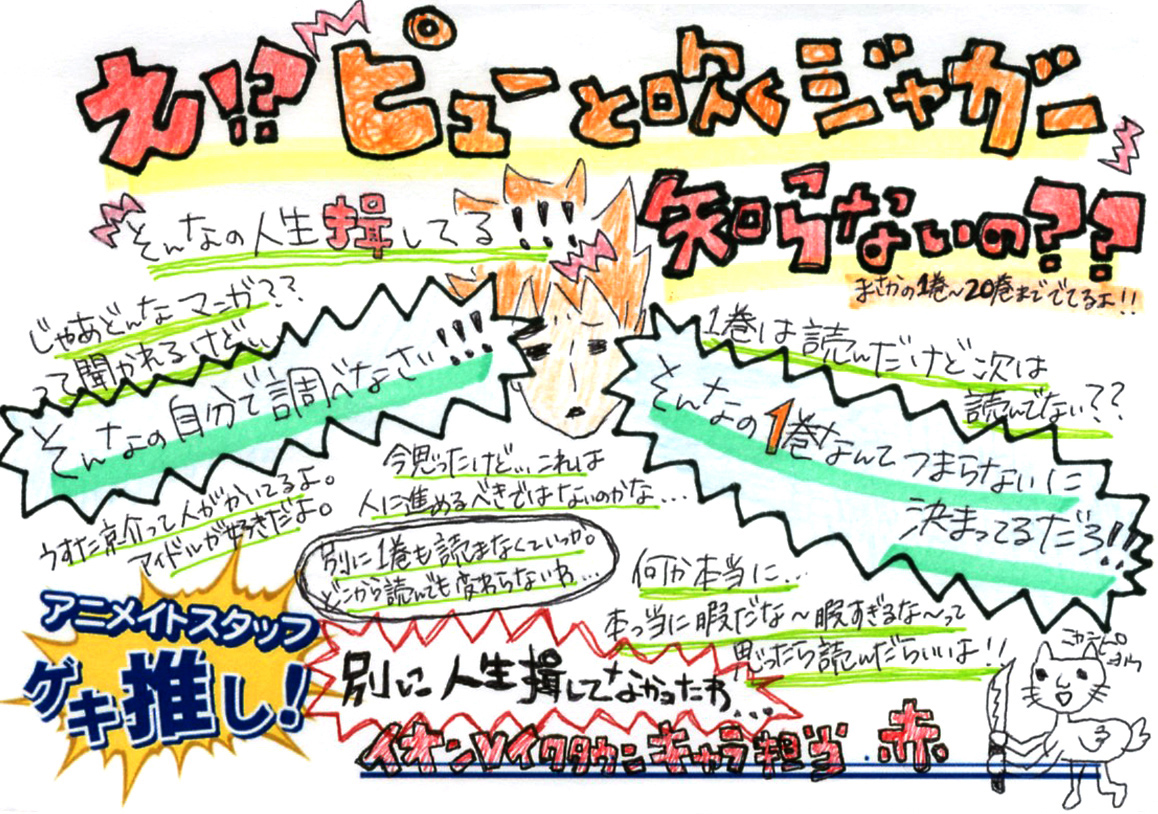 え!?ピューと吹くジャガー
知らないの??
まさかの1巻〜20巻まででてるよ!!
そんなの人生揖してる!!!!
じゃあどんなマンガ??
って聞かれるけど...
そんなの自分で調べなさい!!!
うすた京介って人がかいてるよ。
アイドルが好きだよ。
1巻は読んだけど次は
読んでない??
そんなの1巻なんてつまらないに
決まってるだろ!!
今思ったけど...これは
人に進めるべきではないのかな...
別に1巻も読まなくていっか。
どこから読んでも変わらないわ...
何か本当に...
本っ当に暇だな〜暇すぎるな〜って
思ったら読んだらいいよ!!
別に人生揖してなかったわ...
アニメイトスタッフ
ゲキ推し!
キャラ担当 赤.